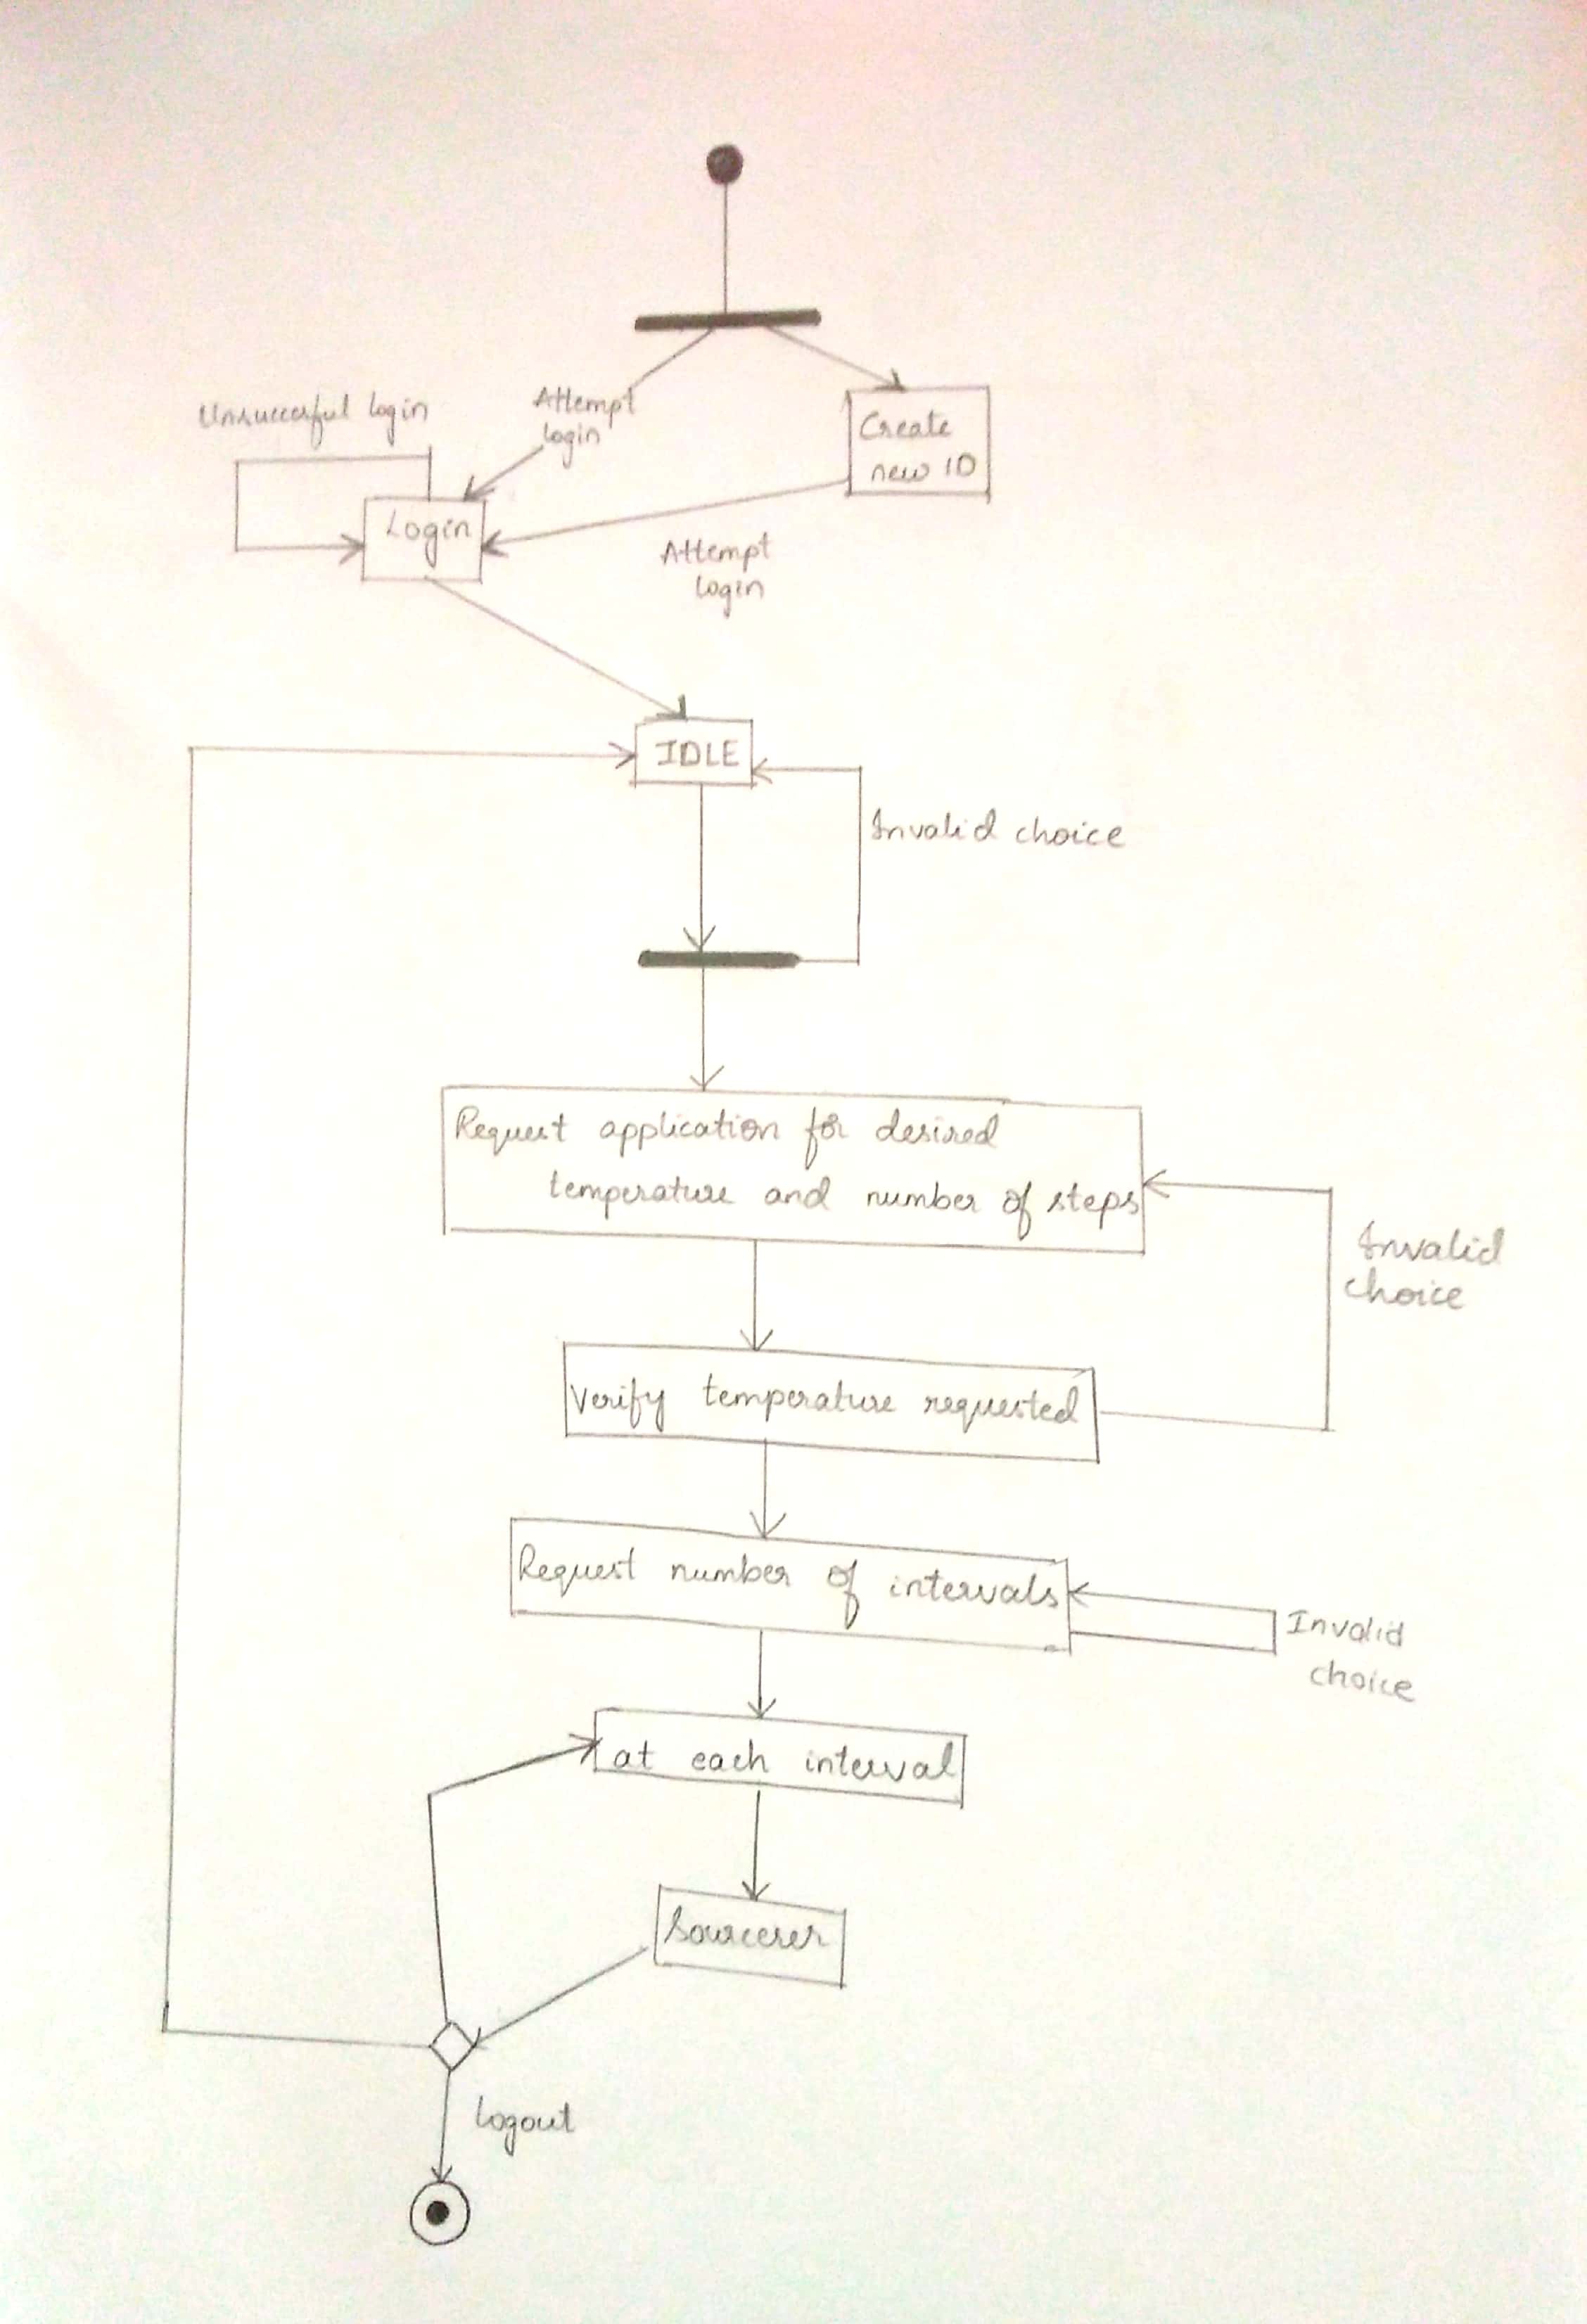 Unsuccesful login
Attempt
login
Create
new ID
Login
Attempt
login
IDLE
Invalid choice
Request application for desired
temperature and number of steps
Invalid
choice
Verify temperature requested
Request number of intervals
Invalid
choice
at each interval
Sourcerer
logout